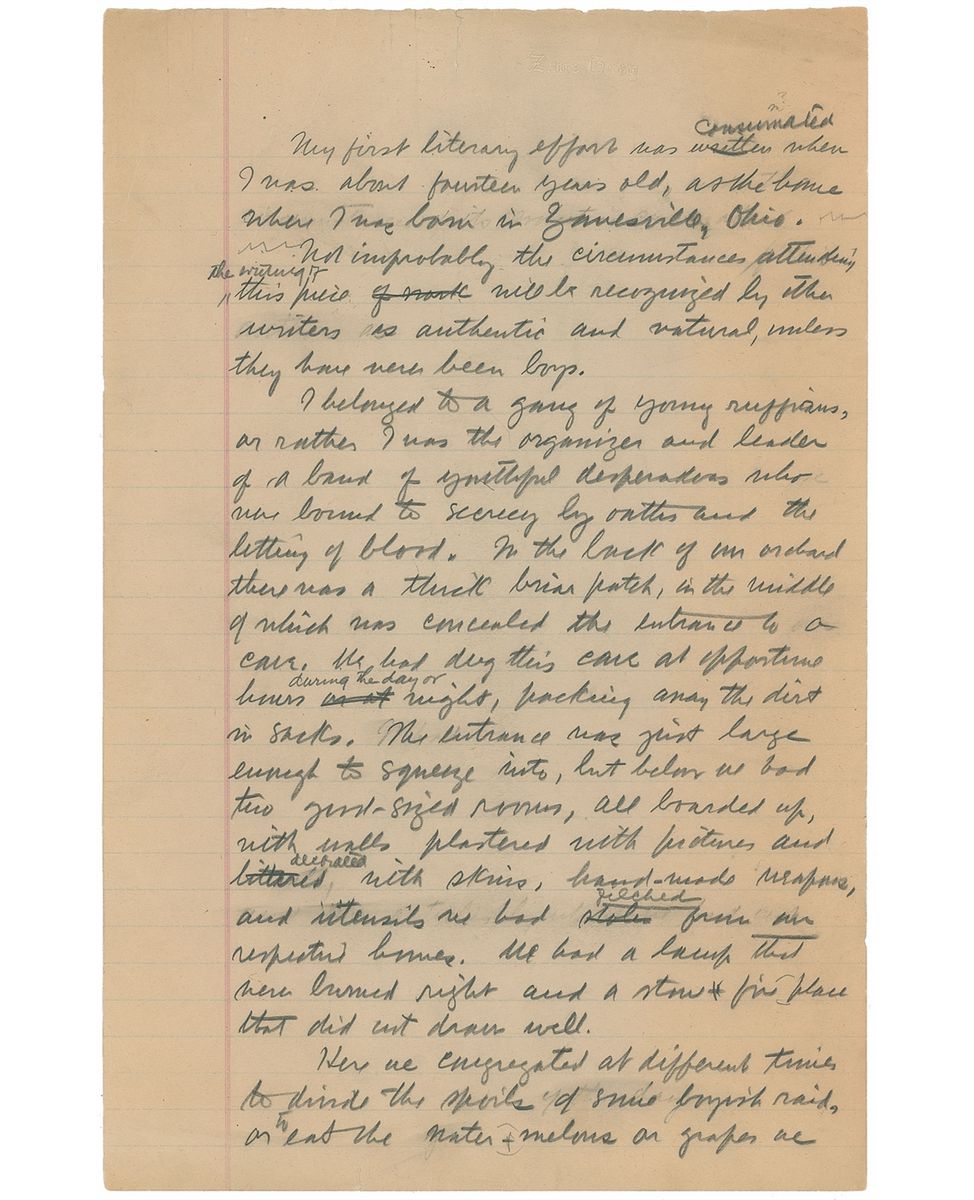 Zane Grey
m?
consumated
My first literary effort was written when
I was about fourteen years old, at the home
where I was born in Zanesville, Ohio.
Not improbably the circumstances attending
the writing of
this piece of work will be recognized by other
writers as authentic and natural, unless
they have never been boys.
I belonged to a gang of young ruffians,
or rather I was the organizer and leader
of a band of youthful desperadoes who
were bound to secrecy by oaths and the
letting of blood. In the back of our orchard
there was a thick briar patch, in the middle
of which was concealed the entrance to a
cave. We had dug this cave at opportune
during the day or
hours or at night, packing away the dirt
in sacks. The entrance was just large
enough to squeeze into, but below we had
two good-sized rooms, all boarded up,
with walls plastered with pictures and
decorated
littered with skins, hand-made weapons,
filched
and utensils we had stolen from our
respective homes. We had a lamp that
never burned right and a stone fire place
that did not draw well.
Here we congregated at different times
to divide the spoils of some boyish raid,
to
or eat the water-melons or grapes we